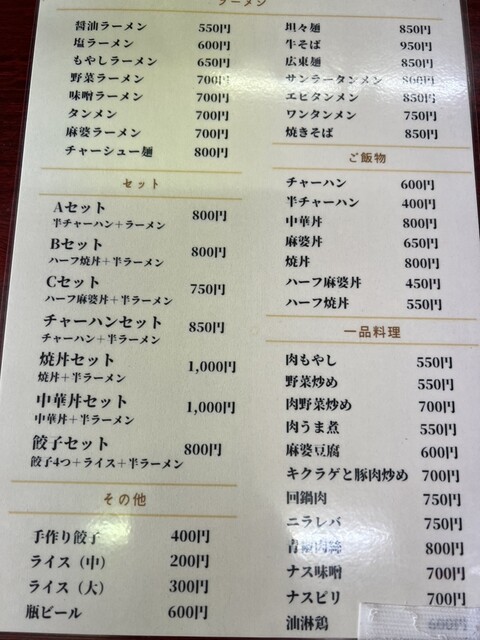 ラーメン
醤油ラーメン 550円
塩ラーメン 600円
もやしラーメン 650円
野菜ラーメン 700円
味噌ラーメン 700円
タンメン 700円
麻婆ラーメン 700円
チャーシュー麺 800円
坦々麺 850円
牛そば 950円
広東麺 850円
サンラータンメン 800円
エビタンメン 850円
ワンタンメン 750円
焼きそば 850円
セット
Aセット 800円
半チャーハン＋ラーメン
Bセット 800円
ハーフ焼丼＋半ラーメン
Cセット 750円
ハーフ麻婆丼＋半ラーメン
チャーハンセット 850円
チャーハン＋半ラーメン
焼丼セット 1,000円
焼丼＋半ラーメン
中華丼セット 1,000円
中華丼＋半ラーメン
餃子セット 800円
餃子4つ＋ライス＋半ラーメン
その他
手作り餃子 400円
ライス（中） 200円
ライス（大） 300円
瓶ビール 600円
ご飯物
チャーハン 600円
半チャーハン 400円
中華丼 800円
麻婆丼 650円
焼丼 800円
ハーフ麻婆丼 450円
ハーフ焼丼 550円
一品料理
肉もやし 550円
野菜炒め 550円
肉野菜炒め 700円
肉うま煮 550円
麻婆豆腐 600円
キクラゲと豚肉炒め 700円
回鍋肉 750円
ニラレバ 750円
800円
ナス味噌 700円
ナスピリ 700円
油淋鶏 600円